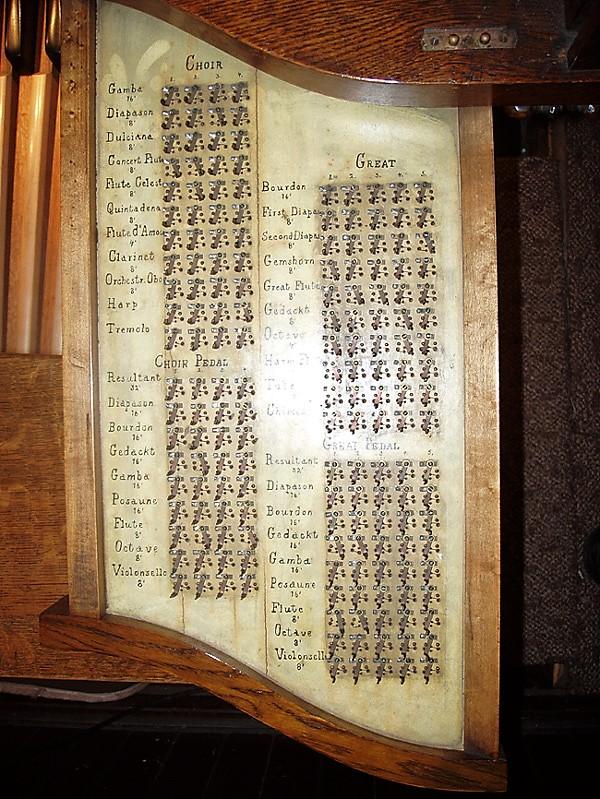 CHOIR
1. 2. 3. 4.
Gamba
16'
Diapason
8'
Dulciana
8'
Concert Flut
8'
Flute Celest
8'
Quintadena
8'
Flute d'Amo
4'
Clarinet
8'
Orchestr. Obo
8'
Harp
Tremolo
CHOIR PEDAL
Resultant
32'
Diapason
16'
Bourdon
16'
Gedackt
16'
Gamba
16'
Posaune
16'
Flute
8'
Octave
8'
Violonselle
8'
GREAT
1. 2. 3. 4. 5.
Bourdon
16'
First Diapa
8'
Second Diapa
8'
Gemshorn
8'
Great Flute
8'
Gedackt
8'
Octave
4'
Harm Fl
Tuba
Chimes
GREAT PEDAL
Resultant
32'
Diapason
16'
Bourdon
16'
Gedackt
16'
Gamba
16'
Posaune
16'
Flute
8'
Octave
8'
Violonselle
8'